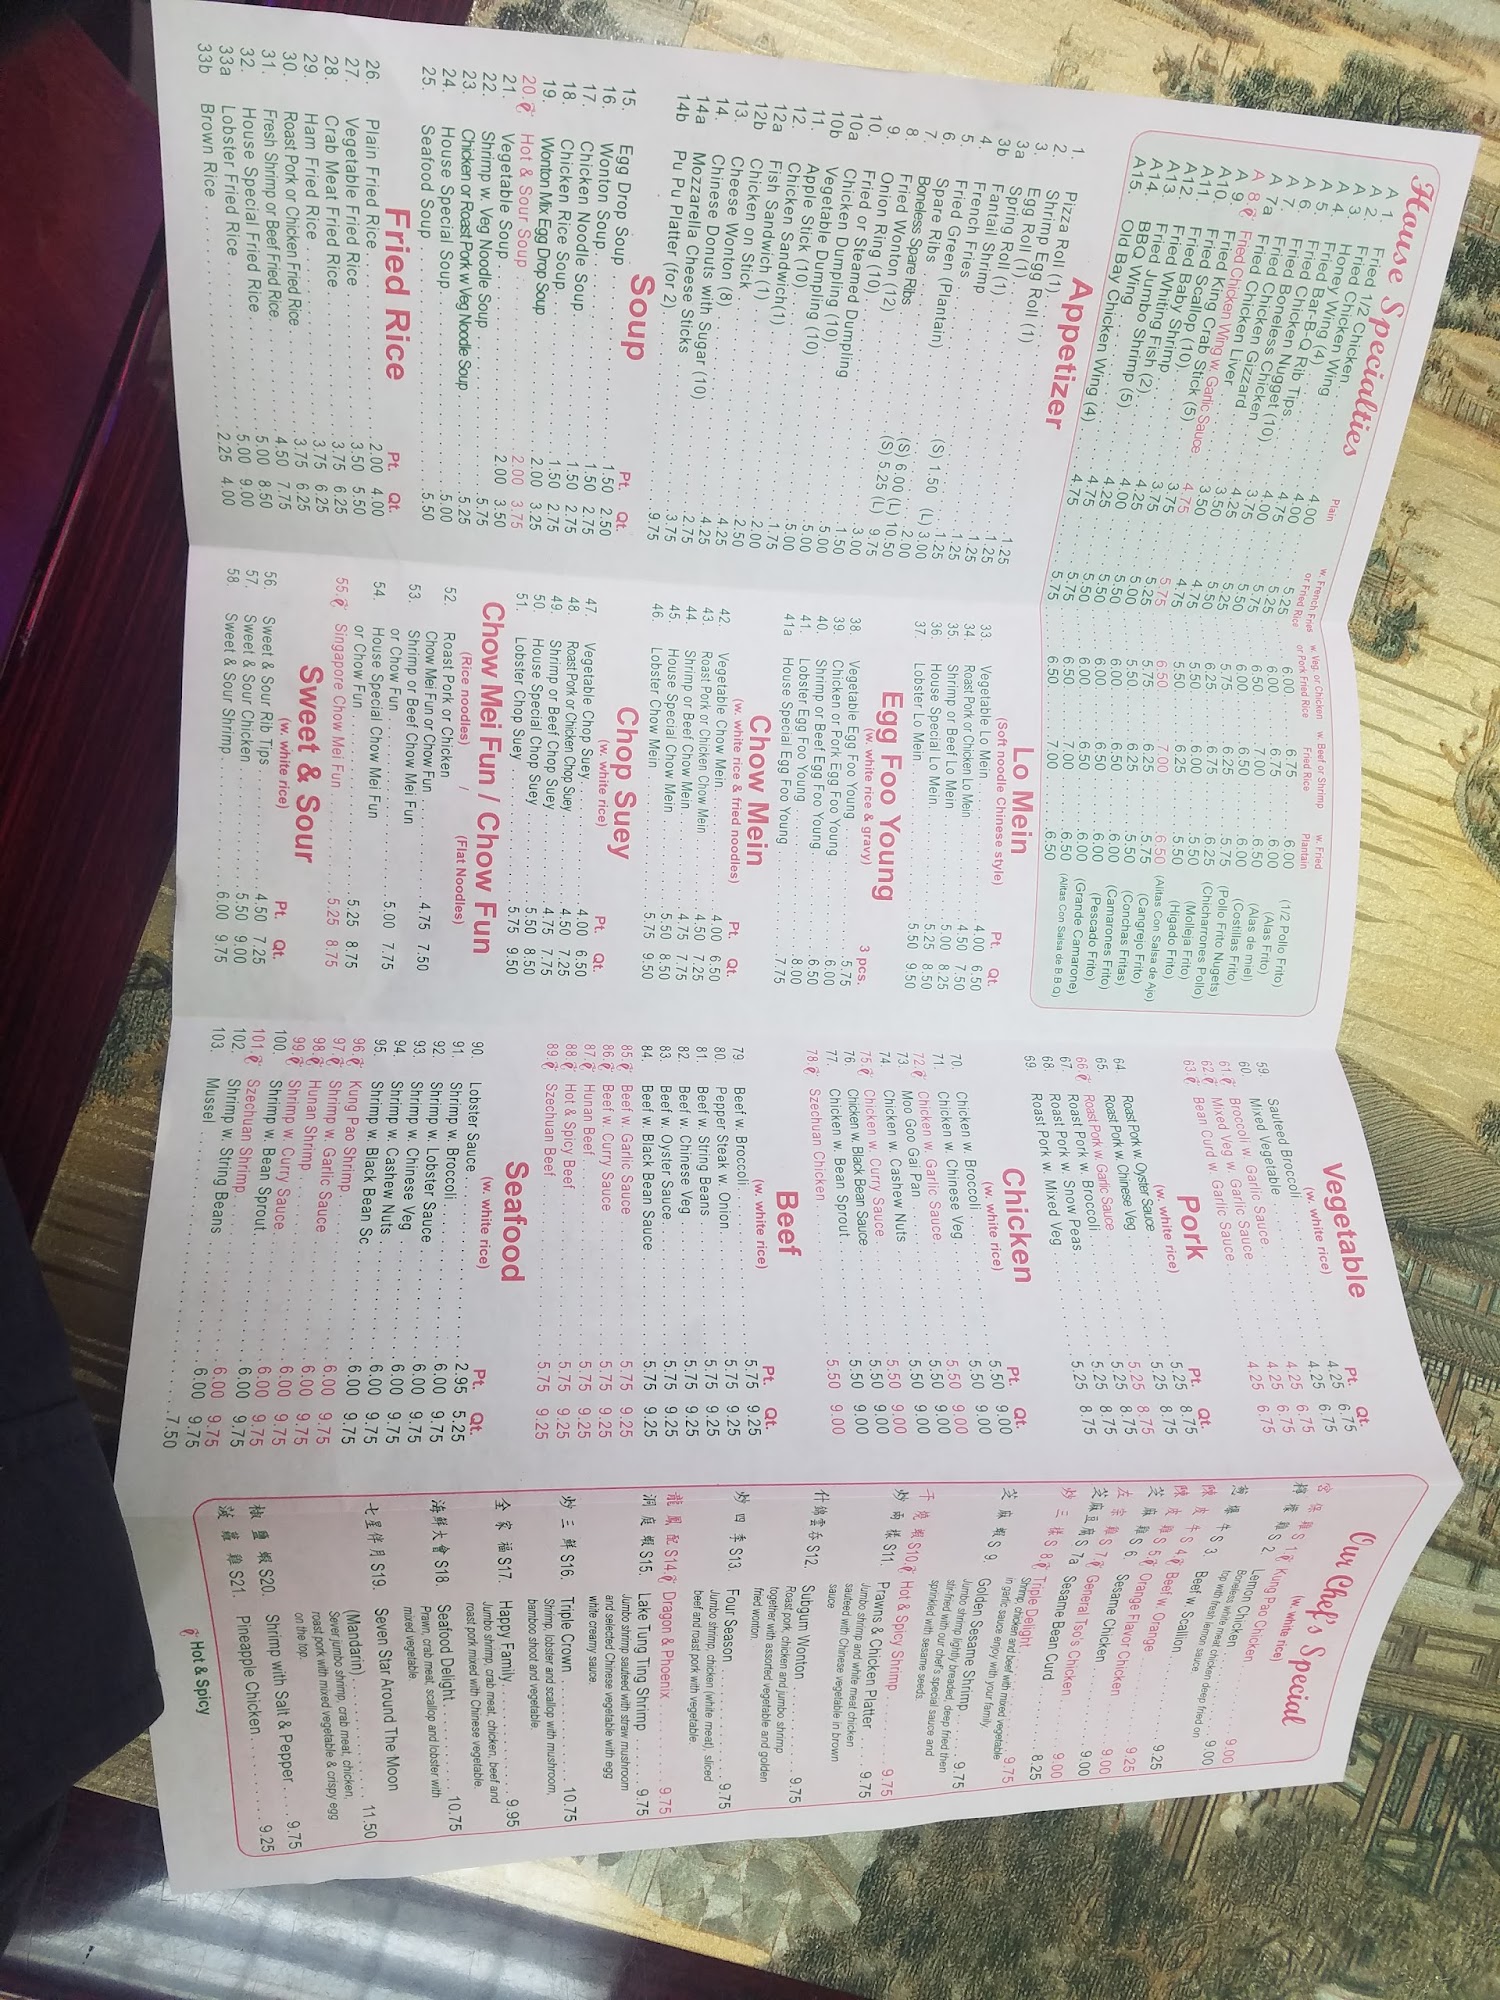 House Specialties
Plain
w. French Fries or Fried Rice
w. Veg. or Chicken or Pork Fried Rice
w. Beef or Shrimp Fried Rice
w. Fried Plantain
A 1. Fried 1/2 Chicken 4.00 5.25 6.00 6.75 6.00 (1/2 Pollo Frito)
A 2. Fried Chicken Wing 4.00 5.25 6.00 6.75 6.00 (Alas Frito)
A 3. Honey Wing (4) 4.75 5.75 6.50 7.00 6.50 (Alas de miel)
A 4. Fried Bar-B-Q Rib Tips 4.00 5.50 6.00 6.50 6.00 (Costillas Frito)
A 5. Fried Chicken Nugget (10) 3.75 5.75 6.50 5.75 (Pollo Frito Nugets)
A 6. Fried Boneless Chicken 4.25 5.50 6.25 6.75 6.25 (Chicharrones Pollo)
A 7. Fried Chicken Gizzard 3.50 4.75 5.50 6.00 5.50 (Molleja Frito)
A 7a Fried Chicken Liver 3.50 4.75 5.50 6.25 5.50 (Higado Frito)
A 8. Fried Chicken Wing w. Garlic Sauce 4.75 5.75 6.50 7.00 6.50 (Alitas Con Salsa de Ajo)
A 9. Fried King Crab Stick (5) 3.75 5.25 5.75 6.25 5.75 (Cangrejo Frito)
A10. Fried Scallop (10) 3.75 5.00 5.50 6.25 5.50 (Conchas Fritas)
A11. Fried Baby Shrimp 4.25 5.50 6.00 6.50 6.00 (Camarones Frito)
A12. Fried Whiting Fish (2) 4.00 5.50 6.00 6.50 6.00 (Pescado Frito)
A13. Fried Jumbo Shrimp (5) 4.25 5.50 6.00 6.50 6.00 (Grande Camarone)
A14. BBQ Wing 4.75 5.75 6.50 7.00 6.50 (Alitas Con Salsa de B.B.Q)
A15. Old Bay Chicken Wing (4) 4.75 5.75 6.50 7.00 6.50
Appetizer
1. Pizza Roll (1) 1.25
2. Shrimp Egg Roll (1) 1.25
3. Egg Roll (1) 1.25
3a Spring Roll (1) 1.25
3b Fantail Shrimp 1.25
4. French Fries
5. Fried Green (Plantain) 3.00
6. Spare Ribs
7. Boneless Spare Ribs
8. Fried Wonton (12)
9. Onion Ring (10)
10. Fried or Steamed Dumpling
10a Chicken Dumpling (10)
10b Vegetable Dumpling (10)
11. Apple Stick (10)
12. Chicken Sandwich(1)
12a Fish Sandwich (1)
12b Chicken on Stick
13. Cheese Wonton (8)
14. Chinese Donuts with Sugar (10)
14a Mozzarella Cheese Sticks 3.75
14b Pu Pu Platter (for 2) 9.75
Soup
Pt. Qt.
15. Egg Drop Soup 1.50 2.50
16. Wonton Soup 1.50 2.75
17. Chicken Noodle Soup 1.50 2.75
18. Chicken Rice Soup 1.50 2.75
19. Wonton Mix Egg Drop Soup 2.00 3.25
20. Hot & Sour Soup 2.00 3.75
21. Vegetable Soup 2.00 3.50
22. Shrimp w. Veg Noodle Soup 5.75
23. Chicken or Roast Pork w Veg Noodle Soup 5.25
24. House Special Soup 5.00
25. Seafood Soup 5.50
Fried Rice
Pt. Qt.
26. Plain Fried Rice 2.00 4.00
27. Vegetable Fried Rice 3.50 5.50
28. Crab Meat Fried Rice 3.75 6.25
29. Ham Fried Rice 3.75 6.25
30. Roast Pork or Chicken Fried Rice 3.75 6.25
31. Fresh Shrimp or Beef Fried Rice 4.50 7.75
32. House Special Fried Rice 5.00 8.50
33a Lobster Fried Rice 5.00 9.00
33b Brown Rice 2.25 4.00
Lo Mein
(Soft noodle Chinese style)
Pt. Qt.
33. Vegetable Lo Mein 4.00 6.50
34. Roast Pork or Chicken Lo Mein 4.50 7.50
35. Shrimp or Beef Lo Mein 5.00 8.25
36. House Special Lo Mein 5.25 8.50
37. Lobster Lo Mein 5.50 9.50
Egg Foo Young
(w. white rice & gravy) 3 pcs.
38. Vegetable Egg Foo Young 5.75
39. Chicken or Pork Egg Foo Young 6.00
40. Shrimp or Beef Egg Foo Young 6.50
41. Lobster Egg Foo Young 8.00
41a House Special Egg Foo Young 7.75
Chow Mein
(w. white rice & fried noodles)
Pt. Qt.
42. Vegetable Chow Mein 4.00 6.50
43. Roast Pork or Chicken Chow Mein 4.50 7.25
44. Shrimp or Beef Chow Mein 4.75 7.75
45. House Special Chow Mein 5.50 8.50
46. Lobster Chow Mein 5.75 9.50
Chop Suey
(w. white rice)
Pt. Qt.
47. Vegetable Chop Suey 4.00 6.50
48. Roast Pork or Chicken Chop Suey 4.50 7.25
49. Shrimp or Beef Chop Suey 4.75 7.75
50. House Special Chop Suey 5.50 8.50
51. Lobster Chop Suey 5.75 9.50
Chow Mei Fun / Chow Fun
(Rice noodles) / (Flat Noodles)
52. Roast Pork or Chicken
Chow Mei Fun or Chow Fun 4.75 7.50
53. Shrimp or Beef Chow Mei Fun
or Chow Fun 5.00 7.75
54. House Special Chow Mei Fun
or Chow Fun 5.25 8.75
55. Singapore Chow Mei Fun 5.25 8.75
Sweet & Sour
(w. white rice)
Pt. Qt.
56. Sweet & Sour Rib Tips 4.50 7.25
57. Sweet & Sour Chicken 5.50 9.00
58. Sweet & Sour Shrimp 6.00 9.75
Vegetable
(w. white rice)
Pt. Qt.
59. Sauteed Broccoli 4.25 6.75
60. Mixed Vegetable 4.25 6.75
61. Broccoli w. Garlic Sauce 4.25 6.75
62. Mixed Veg w. Garlic Sauce 4.25 6.75
63. Bean Curd w. Garlic Sauce 4.25 6.75
Pork
(w. white rice)
Pt. Qt.
64. Roast Pork w. Oyster Sauce 5.25 8.75
65. Roast Pork w. Chinese Veg 5.25 8.75
66. Roast Pork w. Garlic Sauce 5.25 8.75
67. Roast Pork w. Broccoli 5.25 8.75
68. Roast Pork w. Snow Peas 5.25 8.75
69. Roast Pork w. Mixed Veg 5.25 8.75
Chicken
(w. white rice)
Pt. Qt.
70. Chicken w. Broccoli 5.50 9.00
71. Chicken w. Chinese Veg 5.50 9.00
72. Chicken w. Garlic Sauce 5.50 9.00
73. Moo Goo Gai Pan 5.50 9.00
74. Chicken w. Cashew Nuts 5.50 9.00
75. Chicken w. Curry Sauce 5.50 9.00
76. Chicken w. Black Bean Sauce 5.50 9.00
77. Chicken w. Bean Sprout 5.50 9.00
78. Szechuan Chicken 5.50 9.00
Beef
(w. white rice)
Pt. Qt.
79. Beef w. Broccoli 5.75 9.25
80. Pepper Steak w. Onion 5.75 9.25
81. Beef w. String Beans 5.75 9.25
82. Beef w. Chinese Veg 5.75 9.25
83. Beef w. Oyster Sauce 5.75 9.25
84. Beef w. Black Bean Sauce 5.75 9.25
85. Beef w. Garlic Sauce 5.75 9.25
86. Beef w. Curry Sauce 5.75 9.25
87. Hunan Beef 5.75 9.25
88. Hot & Spicy Beef 5.75 9.25
89. Szechuan Beef 5.75 9.25
Seafood
(w. white rice)
Pt. Qt.
90. Lobster Sauce 2.95 5.25
91. Shrimp w. Broccoli 6.00 9.75
92. Shrimp w. Lobster Sauce 6.00 9.75
93. Shrimp w. Chinese Veg 6.00 9.75
94. Shrimp w. Cashew Nuts 6.00 9.75
95. Shrimp w. Black Bean Sc 6.00 9.75
96. Kung Pao Shrimp 6.00 9.75
97. Shrimp w. Garlic Sauce 6.00 9.75
98. Hunan Shrimp 6.00 9.75
99. Shrimp w. Curry Sauce 6.00 9.75
100. Shrimp w. Bean Sprout 6.00 9.75
101. Szechuan Shrimp 6.00 9.75
102. Shrimp w. String Beans 6.00 9.75
103. Mussel 7.50
Our Chef's Special
(w. white rice)
宮保雞 S 1. Kung Pao Chicken 9.00
檸檬雞 S 2. Lemon Chicken 9.00
Boneless white meat chicken deep fried on
top with fresh lemon sauce.
蔥爆牛 S 3. Beef w. Scallion 9.25
陳皮牛 S 4. Beef w. Orange 9.25
陳皮雞 S 5. Orange Flavor Chicken 9.00
芝麻雞 S 6. Sesame Chicken 9.00
左宗雞 S 7. General Tso's Chicken 9.00
芝麻豆腐 S 7a Sesame Bean Curd 8.25
炒三樣 S 8. Triple Delight 9.75
Shrimp, chicken and beef with mixed vegetable
in garlic sauce enjoy with your family
芝麻蝦 S 9. Golden Sesame Shrimp 9.75
Jumbo shrimp lightly breaded, deep fried then
stir-fried with our chef's special sauce and
sprinkled with sesame seeds.
干燒蝦 S10. Hot & Spicy Shrimp 9.75
炒兩樣 S11. Prawns & Chicken Platter 9.75
Jumbo shrimp and white meat chicken
sauteed with Chinese vegetable in brown
sauce
什錦雲吞 S12. Subgum Wonton 9.75
Roast pork, chicken and jumbo shrimp
together with assorted vegetable and golden
fried wonton.
炒四季 S13. Four Season 9.75
Jumbo shrimp, chicken (white meat), sliced
beef and roast pork with vegetable.
龍鳳配 S14. Dragon & Phoenix 9.75
洞庭蝦 S15. Lake Tung Ting Shrimp 9.75
Jumbo shrimp sauteed with straw mushroom
and selected Chinese vegetable with egg
white creamy sauce.
炒三鮮 S16. Triple Crown 10.75
Shrimp, lobster and scallop with mushroom,
bamboo shoot and vegetable.
全家福 S17. Happy Family 9.95
Jumbo shrimp, crab meat, chicken, beef and
roast pork mixed with Chinese vegetable.
海鮮大會 S18. Seafood Delight 10.75
Prawn, crab meat, scallop and lobster with
mixed vegetable.
七星伴月 S19. Seven Star Around The Moon
(Mandarin) 11.50
Server jumbo shrimp, crab meat, chicken,
roast pork with mixed vegetable & crispy egg
on the top.
椒鹽蝦 S20. Shrimp with Salt & Pepper 9.75
菠蘿雞 S21. Pineapple Chicken 9.25
Hot & Spicy